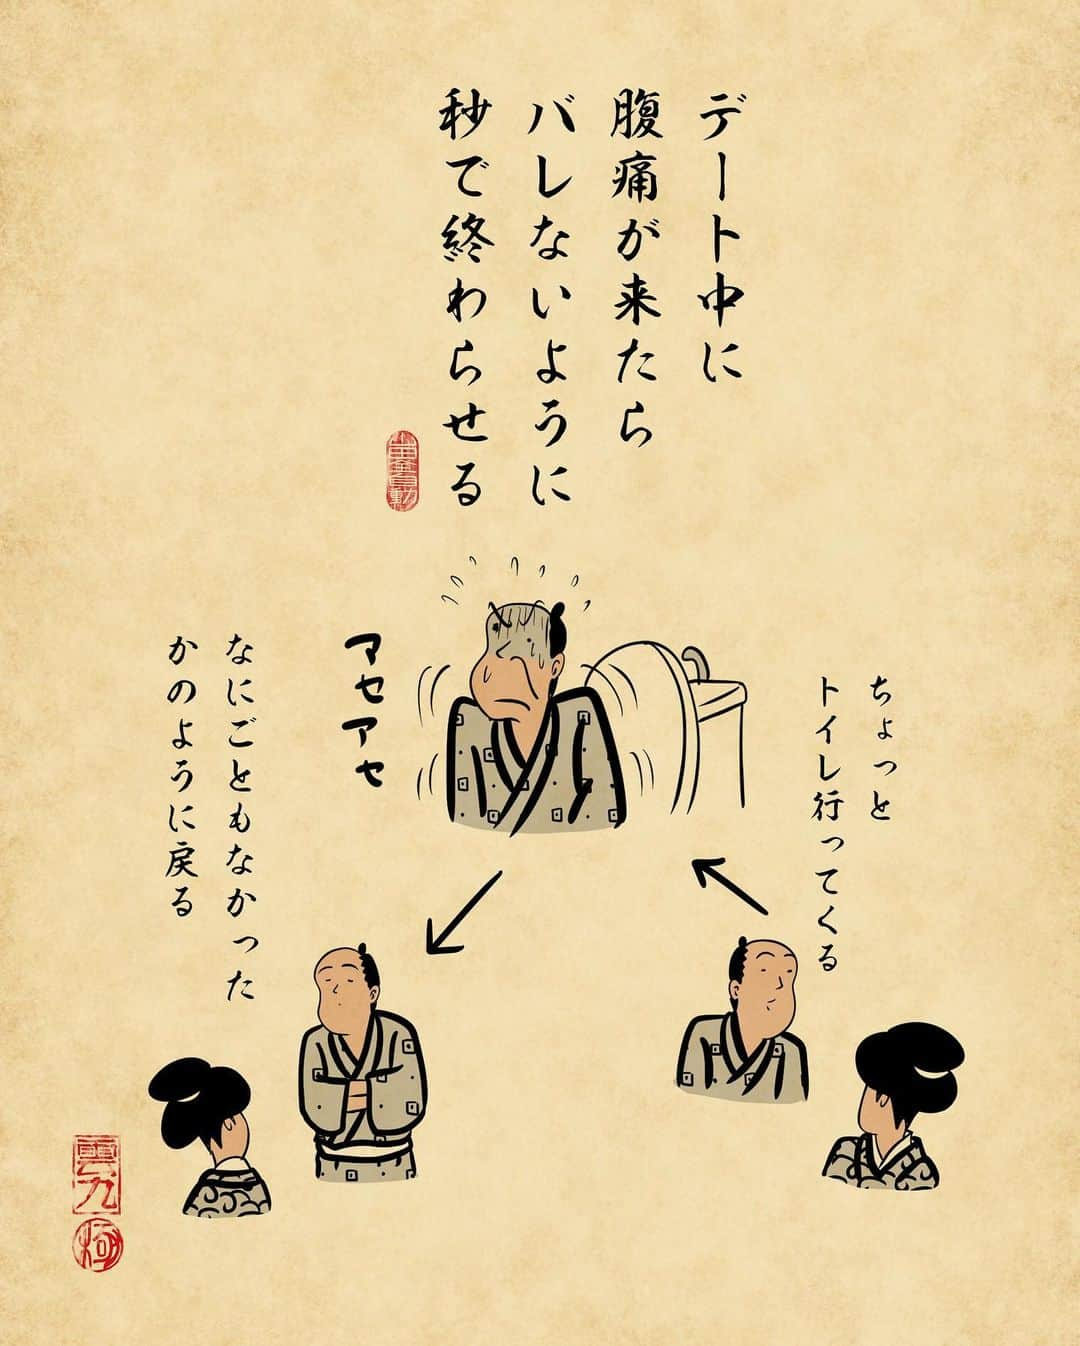 デート中に
腹痛が来たら
バレないように
秒で終わらせる
ちょっと
トイレ行ってくる
アセアセ
なにごともなかった
かのように戻る